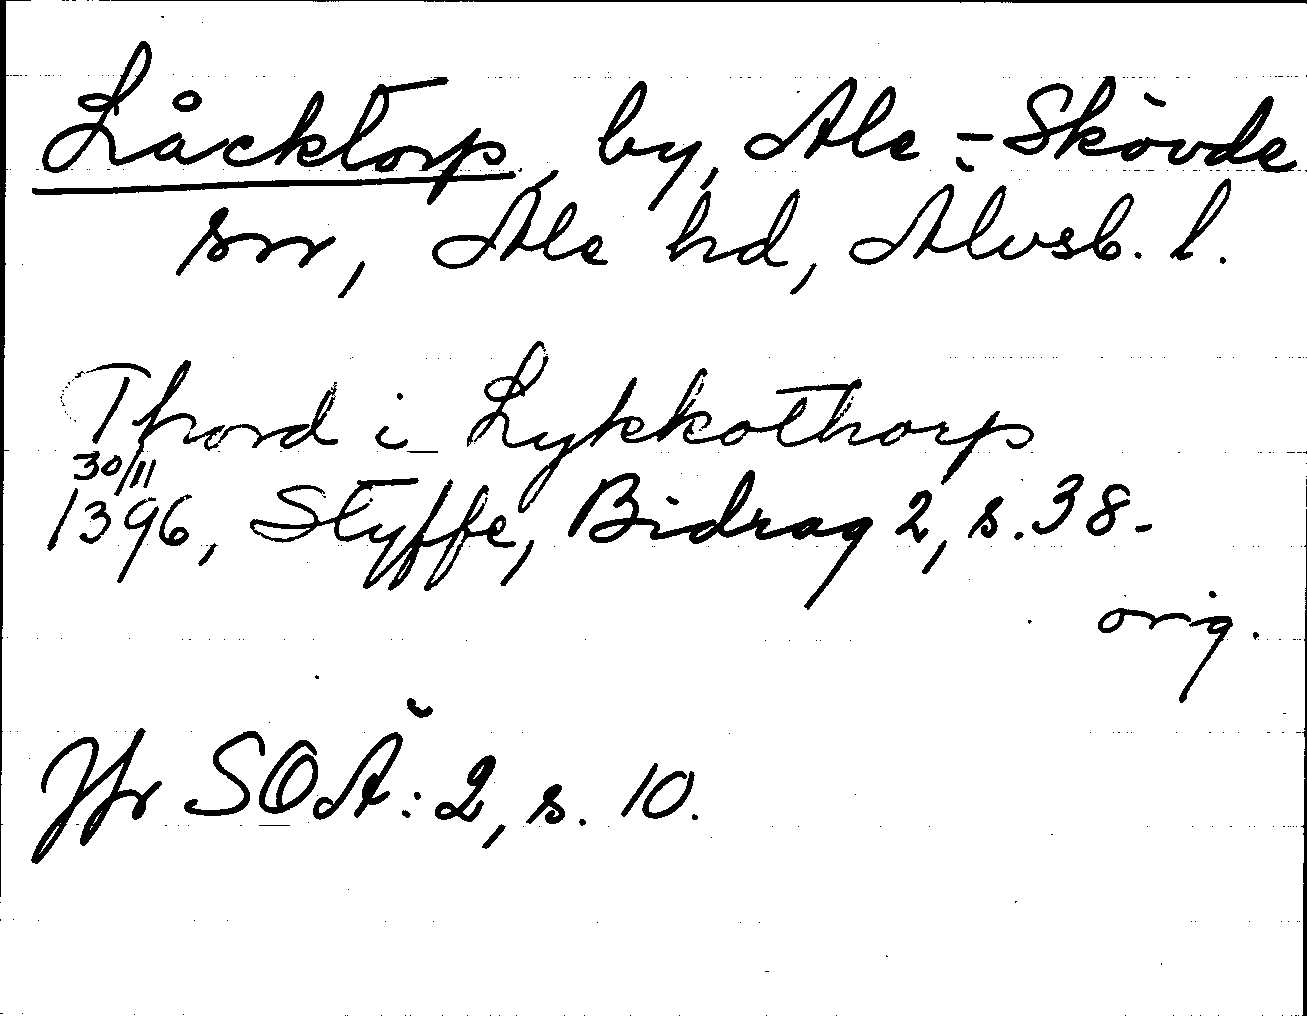 Låcktorp, by, Ale-Skövde
sn, Ale hd, Älvsb. l.
Thord i Lykkothorp
30/11
1396, Styffe, Bidrag 2, s. 38.
orig.
Jfr SOÄ: 2, s. 10.